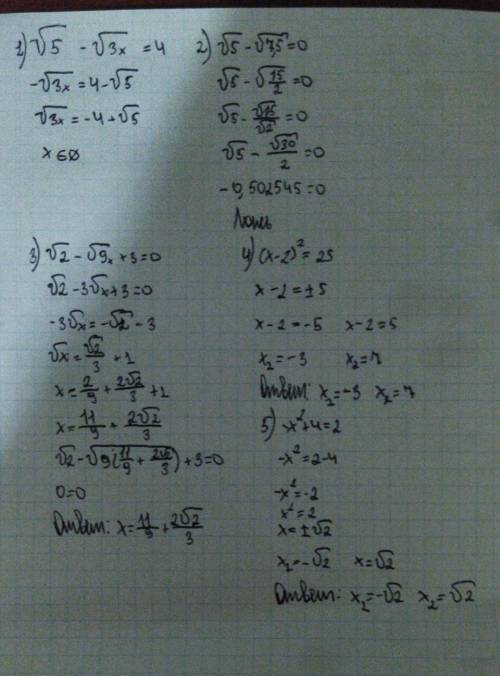 1) √5 - √3x = 4
-√3x = 4-√5
√3x = -4+√5
x∈∅
2) √5 - √7,5 = 0
√5 - √(15/2) = 0
√5 - √15/√2 = 0
√5 - √30/2 = 0
-0,502545 = 0
Ложь
3) √2 - √9x + 3 = 0
√2 - 3√x + 3 = 0
-3√x = -√2 - 3
√x = √2/3 + 1
x = 2/9 + 2√2/3 + 1
x = 11/9 + 2√2/3
√2 - √(9(11/9 + 2√2/3)) + 3 = 0
0=0
Ответ: x = 11/9 + 2√2/3
4) (x-2)² = 25
x-2 = ±5
x-2 = -5 x-2 = 5
x₁ = -3 x₂ = 7
Ответ: x₁ = -3 x₂ = 7
5) -x²+4 = 2
-x² = 2-4
-x² = -2
x² = 2
x = ±√2
x₁ = -√2 x = √2
Ответ: x₁ = -√2 x₂ = √2